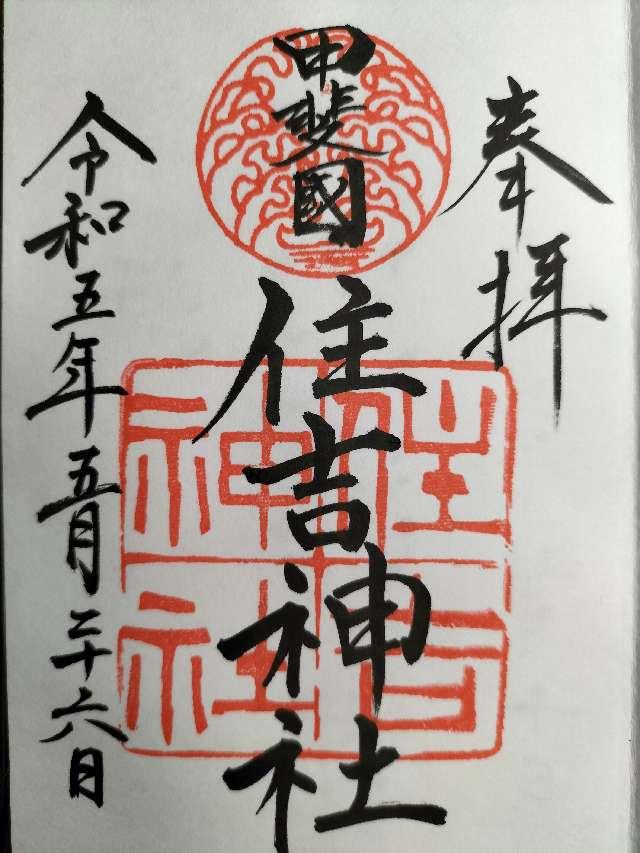 奉拝
甲斐國
住吉神社
住吉神社
令和五年五月二十六日